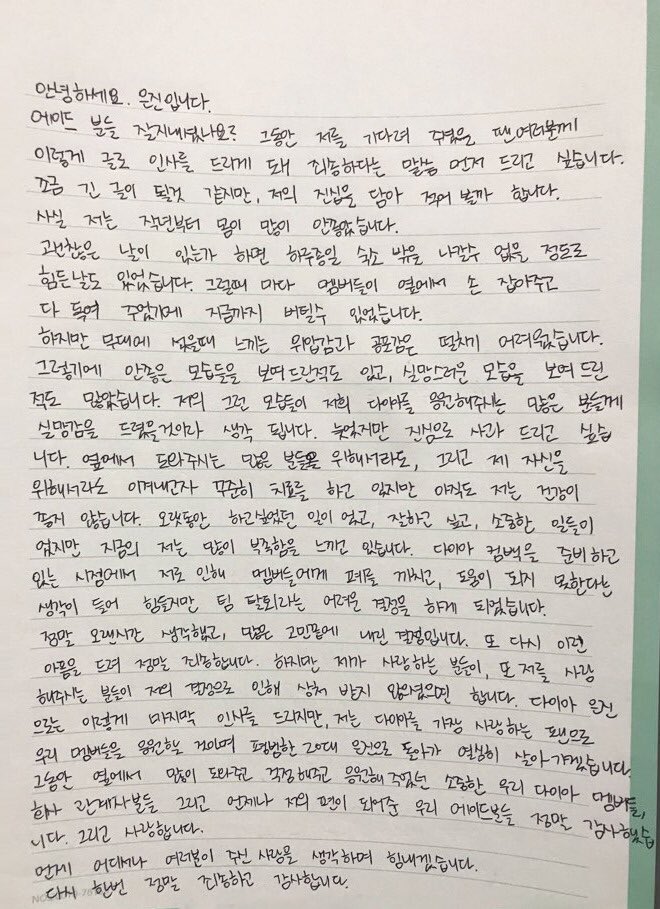 안녕하세요. 은진입니다.
에이드 분들 잘지내셨나요? 그동안 저를 기다려 주셨을 팬여러분께
이렇게 글로 인사를 드리게 돼 죄송하다는 말씀 먼저 드리고 싶습니다.
조금 긴 글이 될것 같지만, 저의 진심을 담아 적어 볼까 합니다.
사실 저는 작년부터 몸이 많이 안좋았습니다.
괜찮은 날이 있는가 하면 하루종일 숙소 밖을 나갈수 없을 정도로
힘든날도 있었습니다. 그럴때 마다 멤버들이 옆에서 손 잡아주고
다 독여 주었기에 지금까지 버틸수 있었습니다.
하지만 무대에 섰을때 느끼는 위압감과 공포감은 떨치기 어려웠습니다.
그렇기에 안좋은 모습들을 보여드린적도 있고, 실망스러운 모습을 보여 드린
적도 많았습니다. 저의 그런 모습들이 저희 다이아를 응원해주시는 많은 분들께
실망감을 드렸을것이라 생각 됩니다. 늦었지만 진심으로 사과 드리고 싶습
니다. 옆에서 도와주시는 많은 분들을 위해서라도, 그리고 제 자신을
위해서라도 이겨내고자 꾸준히 치료를 하고 있지만 아직도 저는 건강이
좋지 않습니다. 오랫동안 하고싶었던 일이 었고, 잘하고 싶고, 소중한 일들이
였지만 지금의 저는 많이 부족함을 느끼고 있습니다. 다이아 컴백을 준비하고
있는 시점에서 저로 인해 멤버들에게 폐를 끼치고, 도움이 되지 못한다는
생각이 들어 힘들지만 팀 탈퇴라는 어려운 결정을 하게 되었습니다.
정말 오랜시간 생각했고, 많은 고민끝에 내린 결정입니다. 또 다시 이런
아픔을 드려 정말 죄송합니다. 하지만 제가 사랑하는 분들이, 또 저를 사랑
해주시는 분들이 저의 결정으로 인해 상처 받지 않으셨으면 합니다. 다이아 은진
으로는 이렇게 마지막 인사를 드리지만, 저는 다이아를 가장 사랑하는 팬으로
우리 멤버들을 응원할 것이며 평범한 20대 은진으로 돌아가 열심히 살아가겠습니다.
그동안 옆에서 많이 도와주고 걱정해주고 응원해 주었던 소중한 우리 다이아 멤버들,
회사 관계자분들 그리고 언제나 저의 편이 되어준 우리 에이드분들 정말 감사했습
니다. 그리고 사랑합니다.
언제 어디서나 여러분이 주신 사랑을 생각하며 힘내겠습니다.
다시 한번 정말 죄송하고 감사합니다.